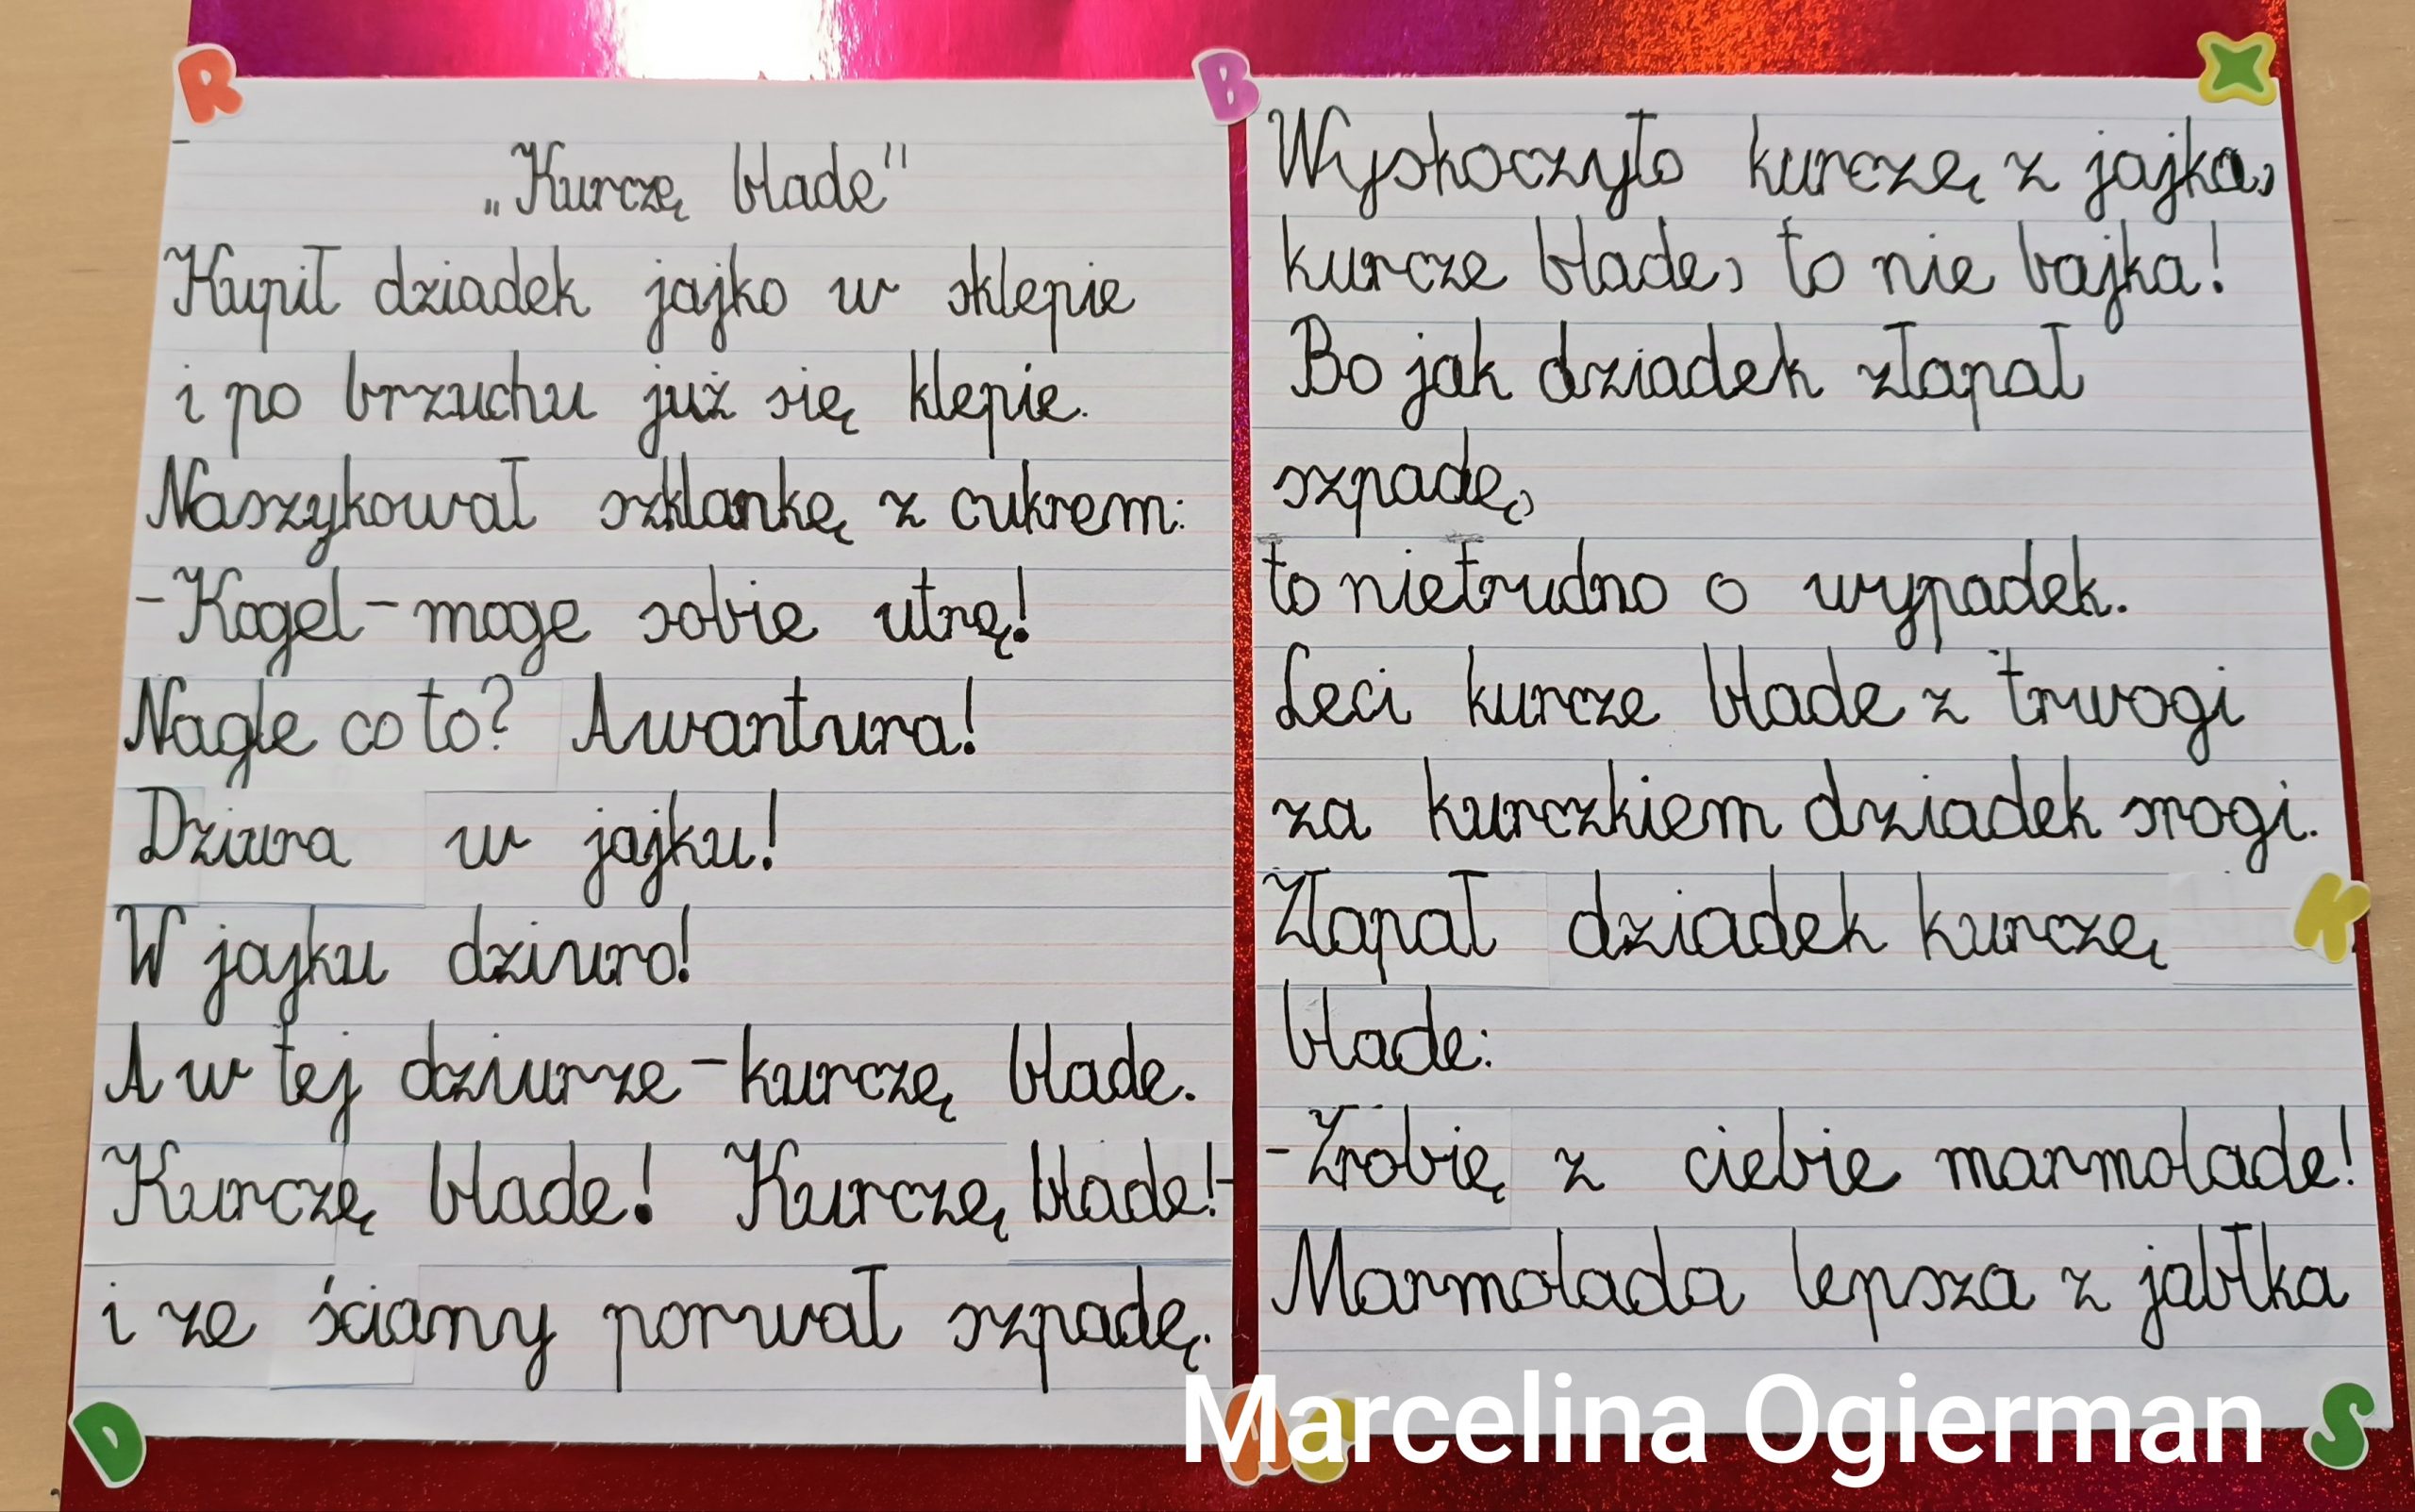 „Kurczę blade"
Kupił dziadek jajko w sklepie
i po brzuchu już się klepie.
Naszykował szklankę z cukrem:
-Kogel-moge sobie utrę!
Nagle co to? Awantura!
Dziura w jajku!
W jajku dziuro!
A w tej dziurze-kurczę blade.
Kurczę blade! Kurczę blade!-
i ze ściany porwał szpadę.
Wyskoczyło kurczę z jajka,
kurcze blade, to nie bajka!
Bo jak dziadek złapał
szpadę,
to nietrudno o wypadek.
Leci kurcze blade z trwogi
za kurczkiem dziadek srogi.
Złapał dziadek kurczę
blade:
-Zrobię z ciebie marmolade!
Marmolada lepsza z jabłka
R
B
X
K
D
S
Marcelina Ogierman